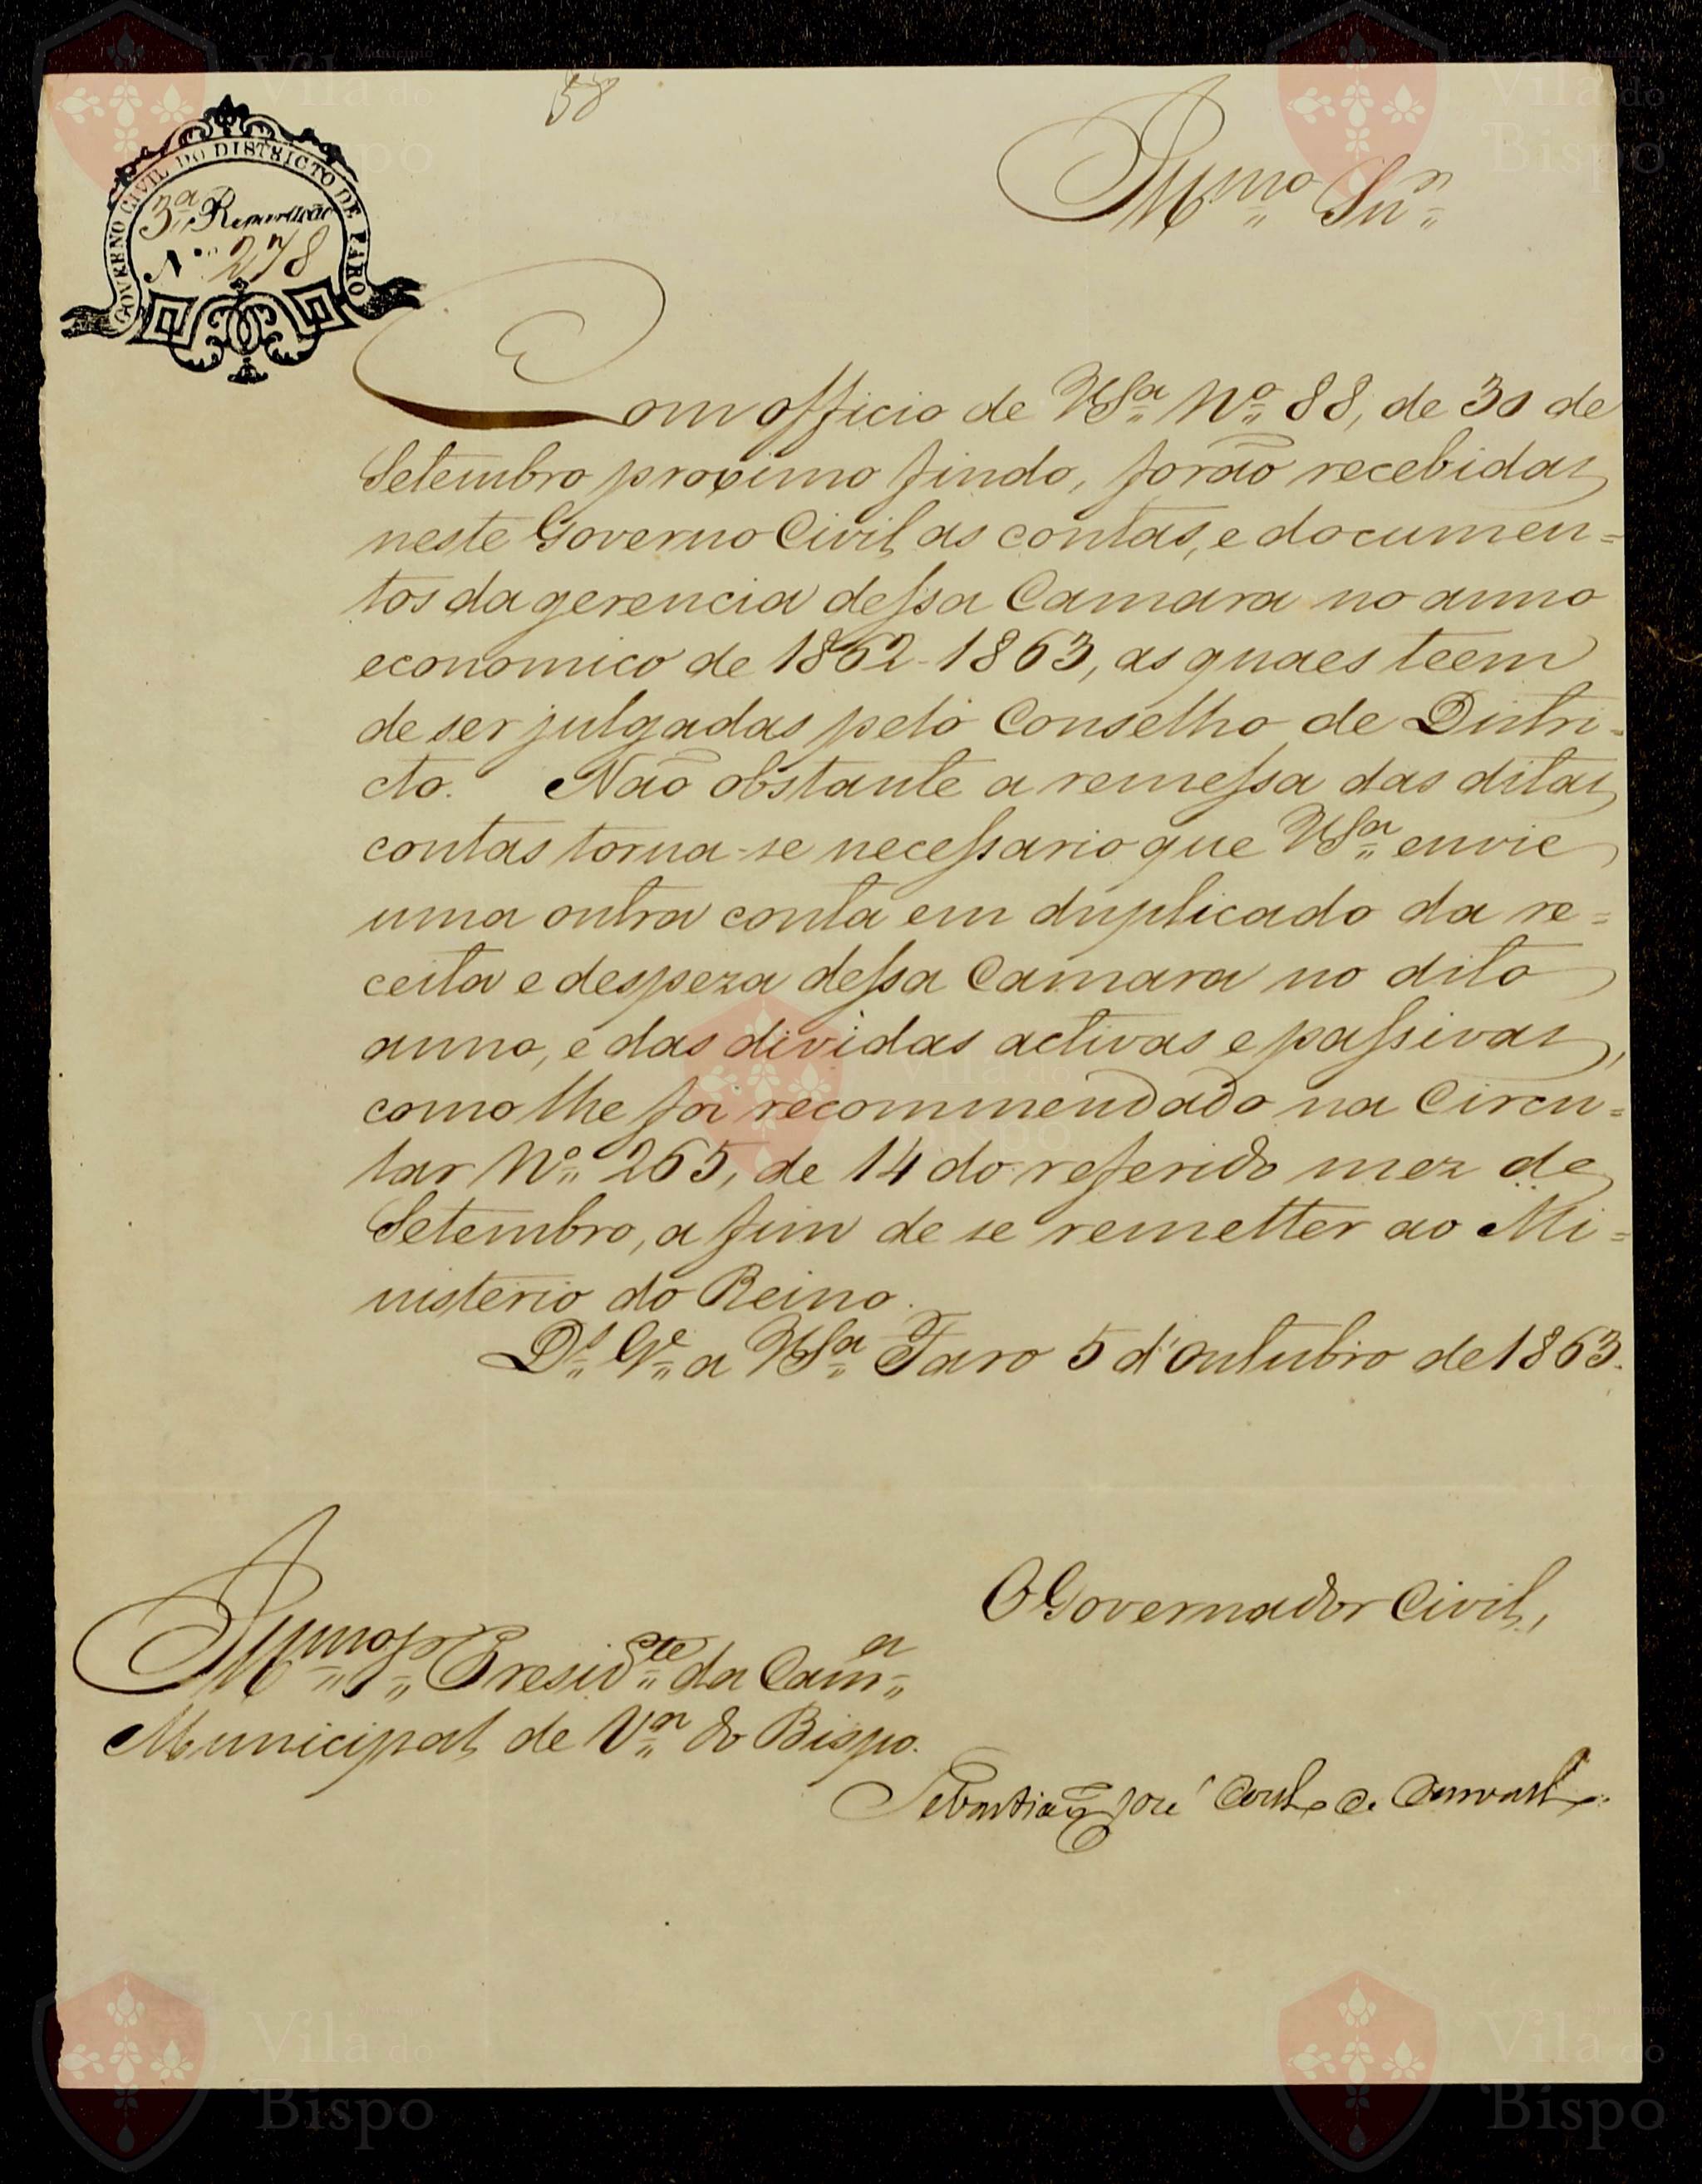 58
GOVERNO CIVIL DO DISTRICTO DE FARO
3ª Repartição
Nº 278
Illmo Snr
Com officio de VSª Nº 88, de 30 de
Setembro proximo findo, forão recebidas
neste Governo Civil as contas, e documen=
tos da gerencia dessa Camara no anno
economico de 1862-1863, as quaes teem
de ser julgadas pelo Conselho de Distri=
cto. Não obstante a remessa das ditas
contas torna-se necessario que VSª envie
uma outra conta em duplicado da re=
ceita e despeza dessa Camara no dito
anno, e das dividas activas e passivas,
como lhe foi recommendado na Circu=
lar Nº 265, de 14 do referido mez de
Setembro, a fim de se remetter ao Mi=
nisterio do Reino.
Ds Ge a VSª Faro 5 d'Outubro de 1863.
O Governador Civil,
Illmo Sr Presidte da Camª
Municipal de Vª do Bispo.
Sebastião José Coelho de Carvalho
Município
Vila do
Bispo